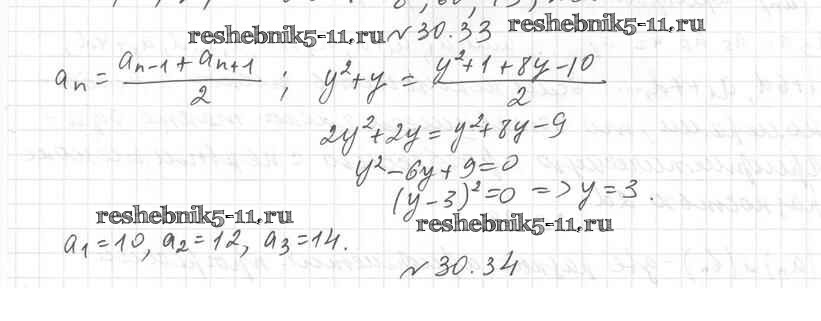 reshebnik5-11.ru № 30.33 reshebnik5-11.ru
aₙ = (aₙ₋₁ + aₙ₊₁)/2 ; y² + y = (y² + 1 + 8y - 10)/2
2y² + 2y = y² + 8y - 9
y² - 6y + 9 = 0
(y - 3)² = 0 => y = 3.
reshebnik5-11.ru reshebnik5-11.ru
a₁ = 10, a₂ = 12, a₃ = 14.
№ 30.34